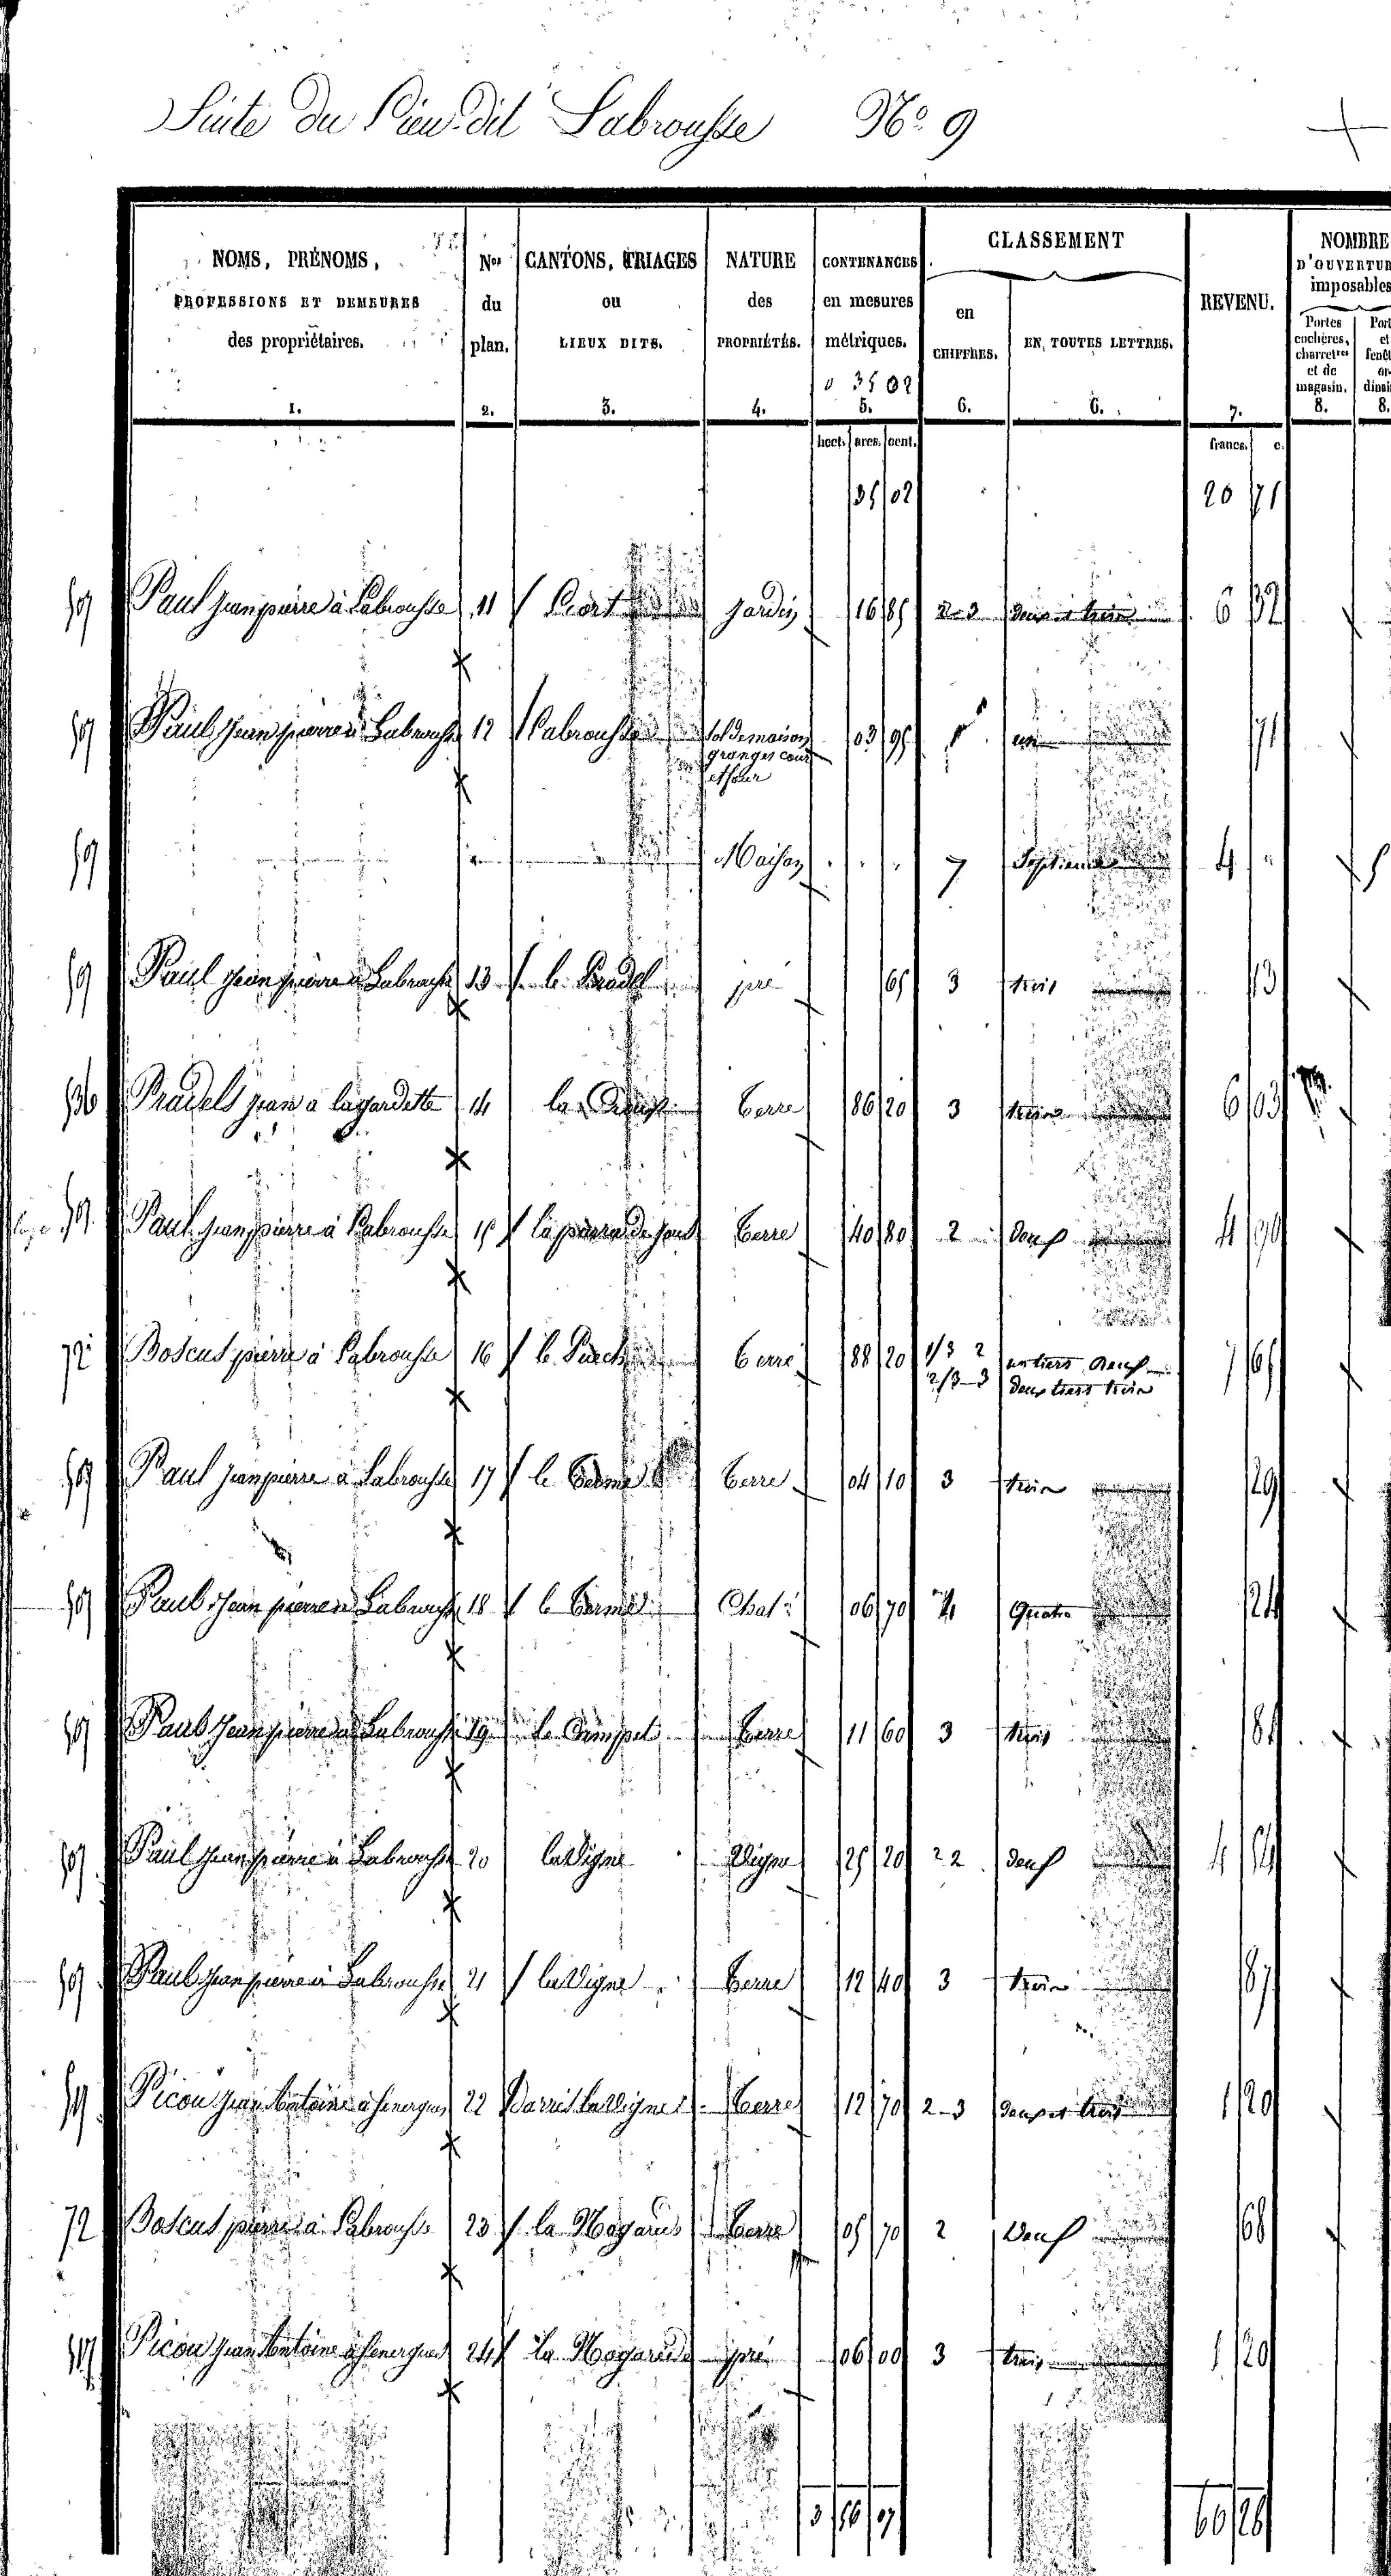 Suite du Lieu-dit Labrousse N.º 9
NOMS, PRÉNOMS, PROFESSIONS ET DEMEURES des propriétaires. 1.
Nos du plan. 2.
CANTONS, TRIAGES ou LIEUX DITS. 3.
NATURE des PROPRIÉTÉS. 4.
CONTENANCES en mesures métriques. 5.
CLASSEMENT
en CHIFFRES. 6.
EN TOUTES LETTRES. 6.
REVENU. 7.
NOMBRE D'OUVERTUR imposables
Portes cochères, charretres et de magasin. 8.
hect. ares. cent. francs. c.
35 02 20 71
59 Paul jean pierre à Labrousse 11 jardin 16 85 2-3 deux et trois 6 32
59 Paul jean pierre à Labrousse 12 Labrousse sol de maison granges cour et four 03 95 1 un 71
59 Maison 7 Septieme 4 "
59 Paul jean pierre à Labrousse 13 le Pradel pré 65 3 trois 13
Pradels jean à lagardette 14 terre 86 20 3 trois 6 03
59 Paul jean pierre à Labrousse 15 terre 40 80 2 deux 4 90
72 Boscus pierre à Labrousse 16 terre 88 20 1/3 2 un tiers deux
2/3-3 deux tiers trois 7 65
59 Paul jean pierre à Labrousse 17 terre 04 10 3 trois 29
59 Paul jean pierre à Labrousse 18 Chat: 06 70 4 Quatre 24
59 Paul jean pierre à Labrousse 19 terre 11 60 3 trois 81
59 Paul jean pierre à Labrousse 20 la Vigne Vigne 25 20 2 deux 4 54
59 Paul jean pierre à Labrousse 21 la Vigne terre 12 40 3 trois 87
Picou jean Antoine à 22 terre 12 70 2-3 deux et trois 1 20
72 Boscus pierre à Labrousse 23 terre 05 70 2 deux 68
Picou jean Antoine à 24 pré 06 00 3 trois 1 20
3 56 07 60 28